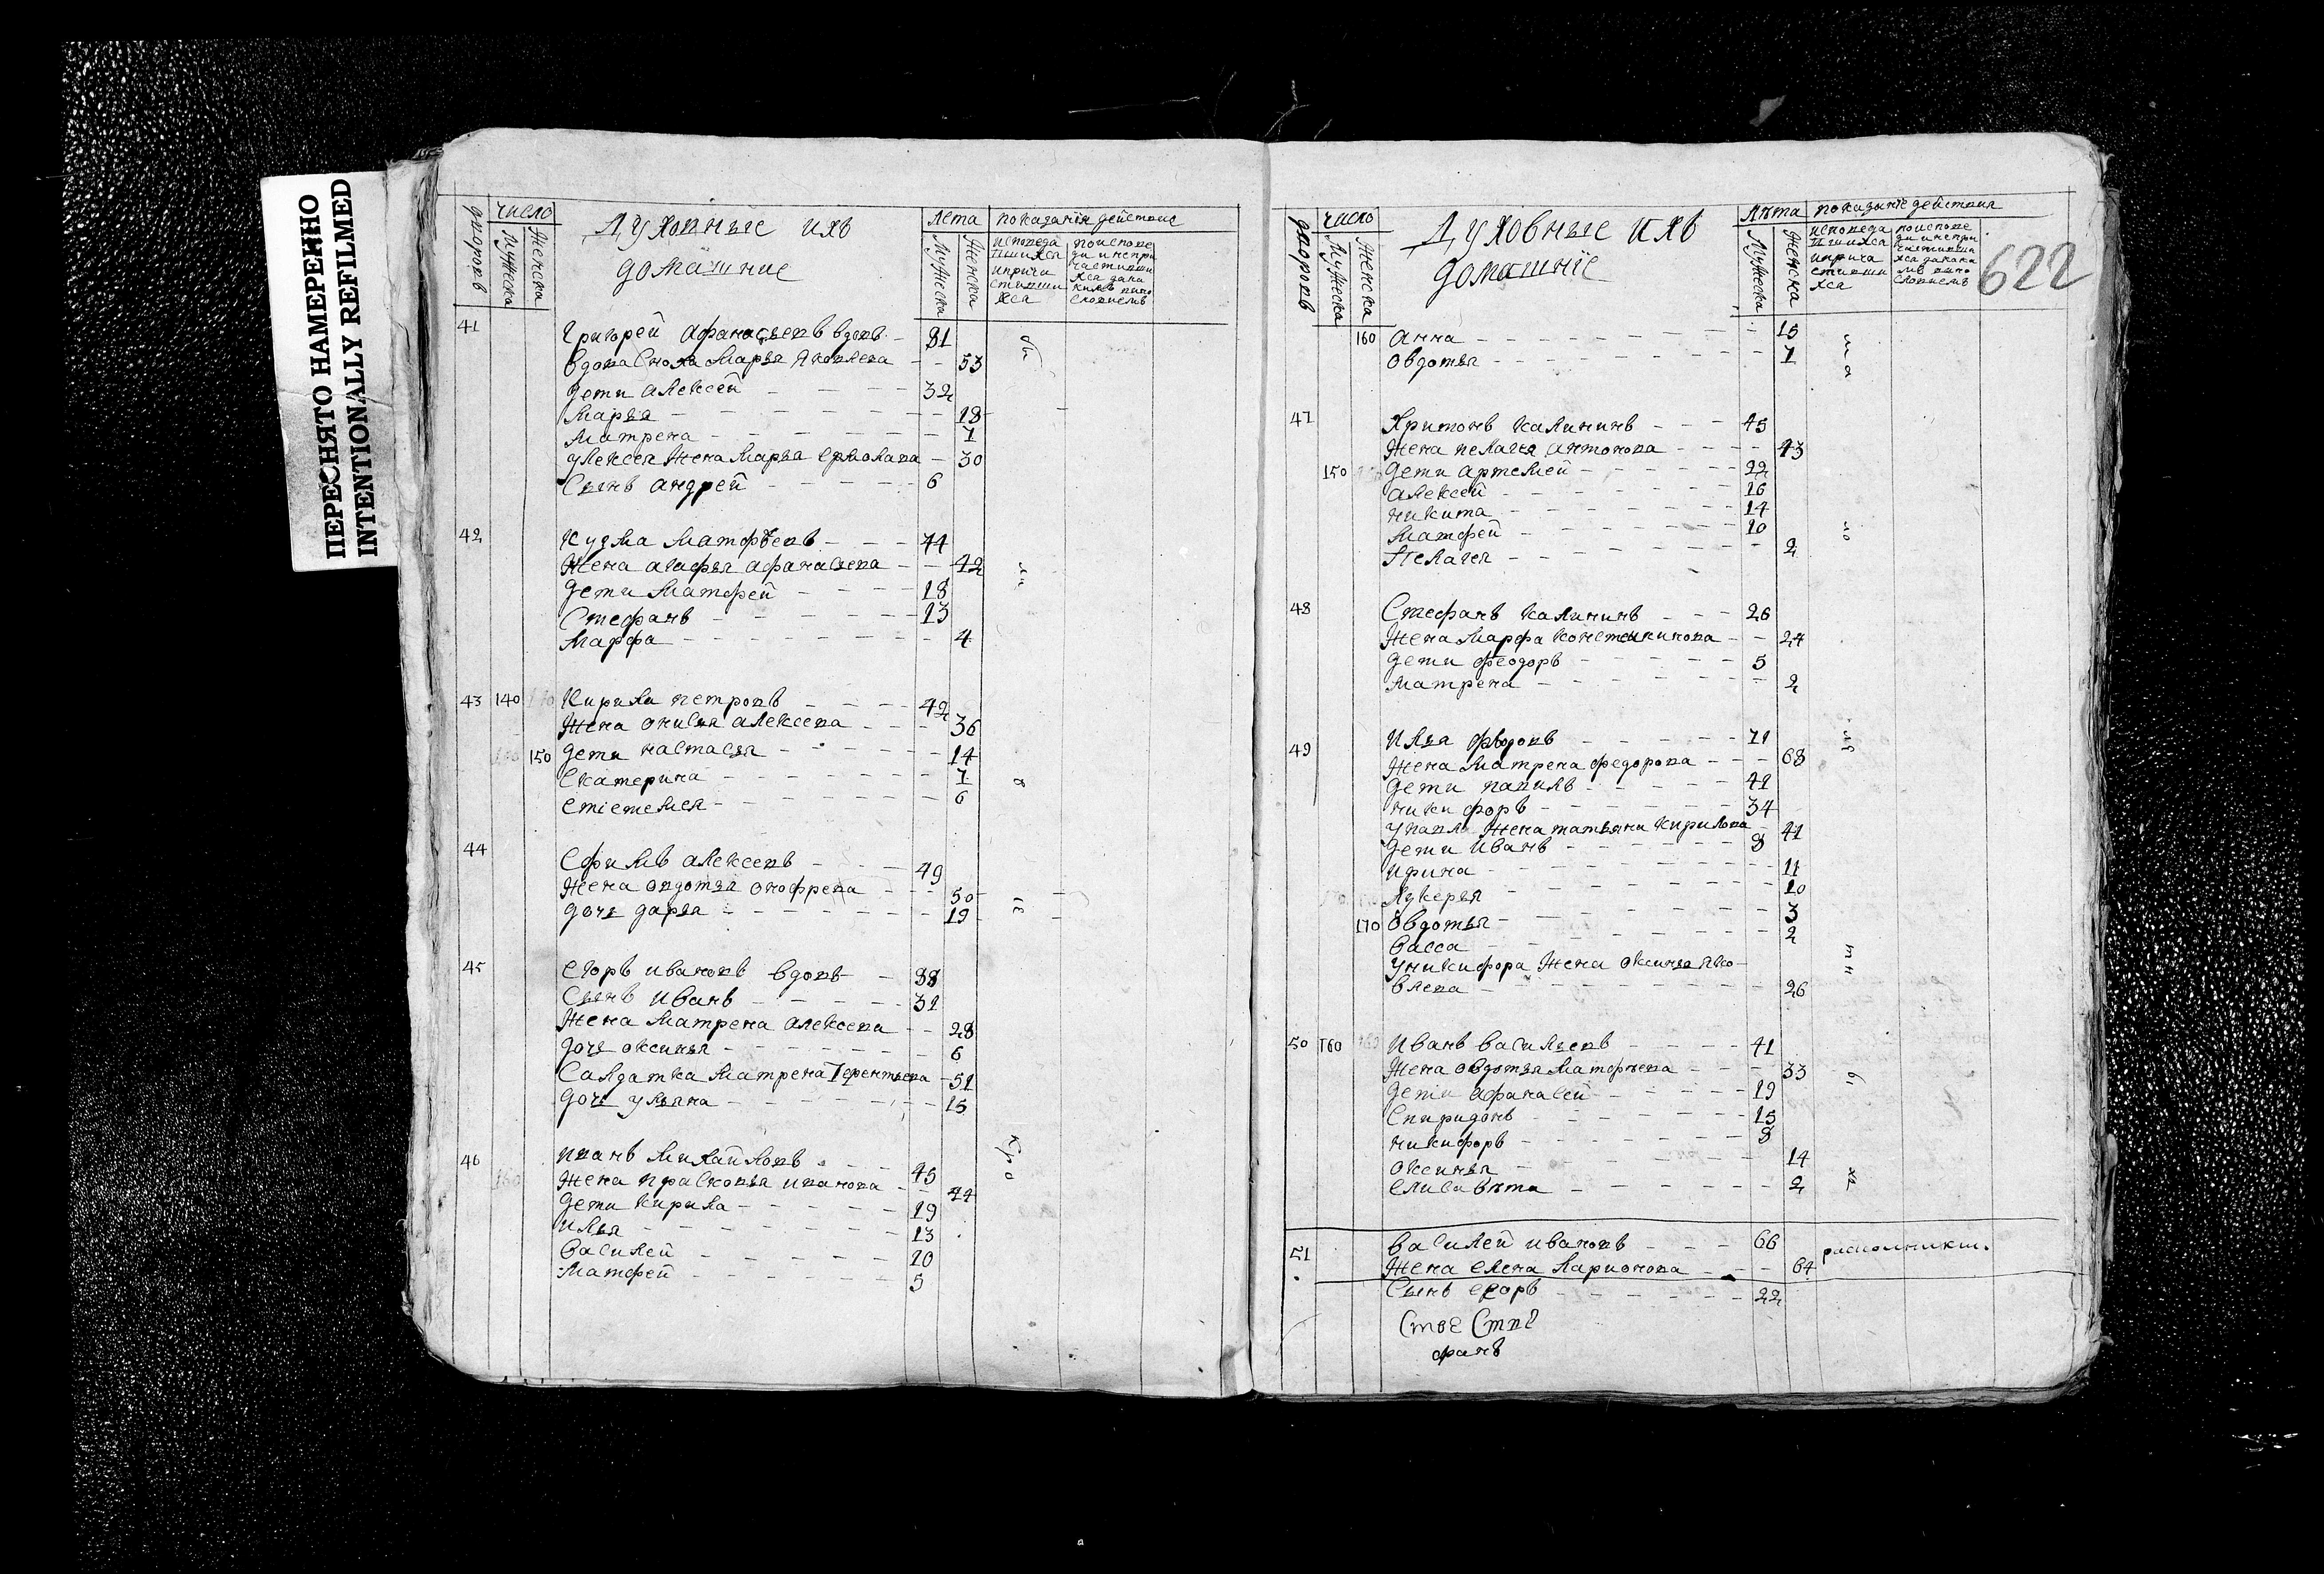 ПЕРЕСНЯТО НАМЕРЕННО
INTENTIONALLY REFILMED
дворовъ
число
Мужеска
Женска
Духовные ихъ
домашние
лета
Мужеска
Женска
показания действие
исповеда
вшихся
и прича
стивши
хся
по испове
ди и непри
частивши
хся
41 Григорей Афанасьевъ вдовъ 81
вдова сноха Марья Яковлева 53
дети Алексей 32
Марья 18
Матрена 7
у Алексея жена Марья Ермолаева 30
Сынъ Андрей 6
42 Кузма Матфѣевъ 44
Жена Агафья Афанасьева 42
дети Матфей 18
Стефанъ 13
Марфа 4
43 140 Кирила Петровъ 42
Жена Онисья Алексева 36
150 дети Настасья 14
Екатерина 7
6
44 Ефимъ Алексевъ 49
Жена Овдотья Онофрева 50
дочь Дарья 19
45 Егоръ Ивановъ вдовъ
Сынъ Иванъ 31
Жена Матрена Алексева 28
дочь Оксинья 6
Салдатка Матрена Терентьева 51
дочь Ульяна 15
46 Иванъ Михайловъ 45
Жена Прасковья Иванова 44
дети Кирила 19
Илья 13
Василей 10
Матфей 5
дворовъ
число
Мужеска
Женска
Духовные ихъ
домашнїе
лѣта
Мужеска
Женска
показание действия
исповеда
вшихся
и прича
стивши
хся
по испове
ди и непри
622
160 Анна 15
Овдотья 7
47 Харитонъ Калининъ 45
Жена Пелагея Антонова 43
150 дети Артемей 22
Алексей 16
Никита 14
Матфей 10
Пелагея 2
48 Стефанъ Калининъ 26
Жена Марфа Констентинова 24
дети Феодоръ 5
Матрена 2
49 Илья 71
Жена Матрена Федорова 68
дети Павилъ 41
Никифоръ 34
у Павла Жена Татьяна Кирилова 41
дети Иванъ 8
Ирина 11
Лукерья 10
170 Овдотья 3
Васса 2
у Никифора Жена Оксинья Яко
влева 26
50 160 Иванъ Васильевъ 41
Жена Овдотья Матфѣева 33
дети Афанасей 19
Спиридонъ 15
Никифоръ 8
Оксинья 14
Елисавѣта 2
51 Василей Ивановъ 66
Жена Елена Ларионова 64
Сынъ Егоръ 22
фанъ